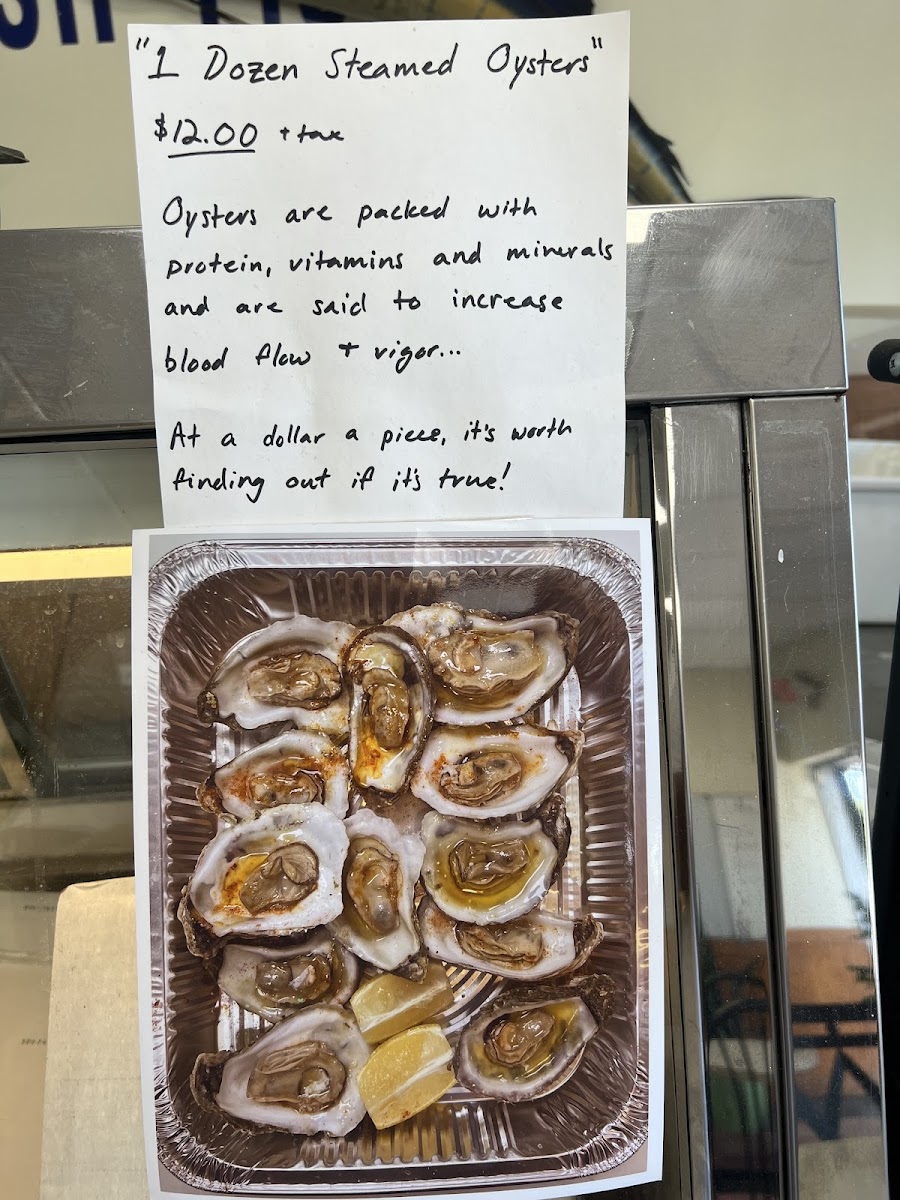 "1 Dozen Steamed Oysters"
$12.00 + tax
Oysters are packed with
protein, vitamins and minerals
and are said to increase
blood flow + vigor...
At a dollar a piece, it's worth
finding out if it's true!